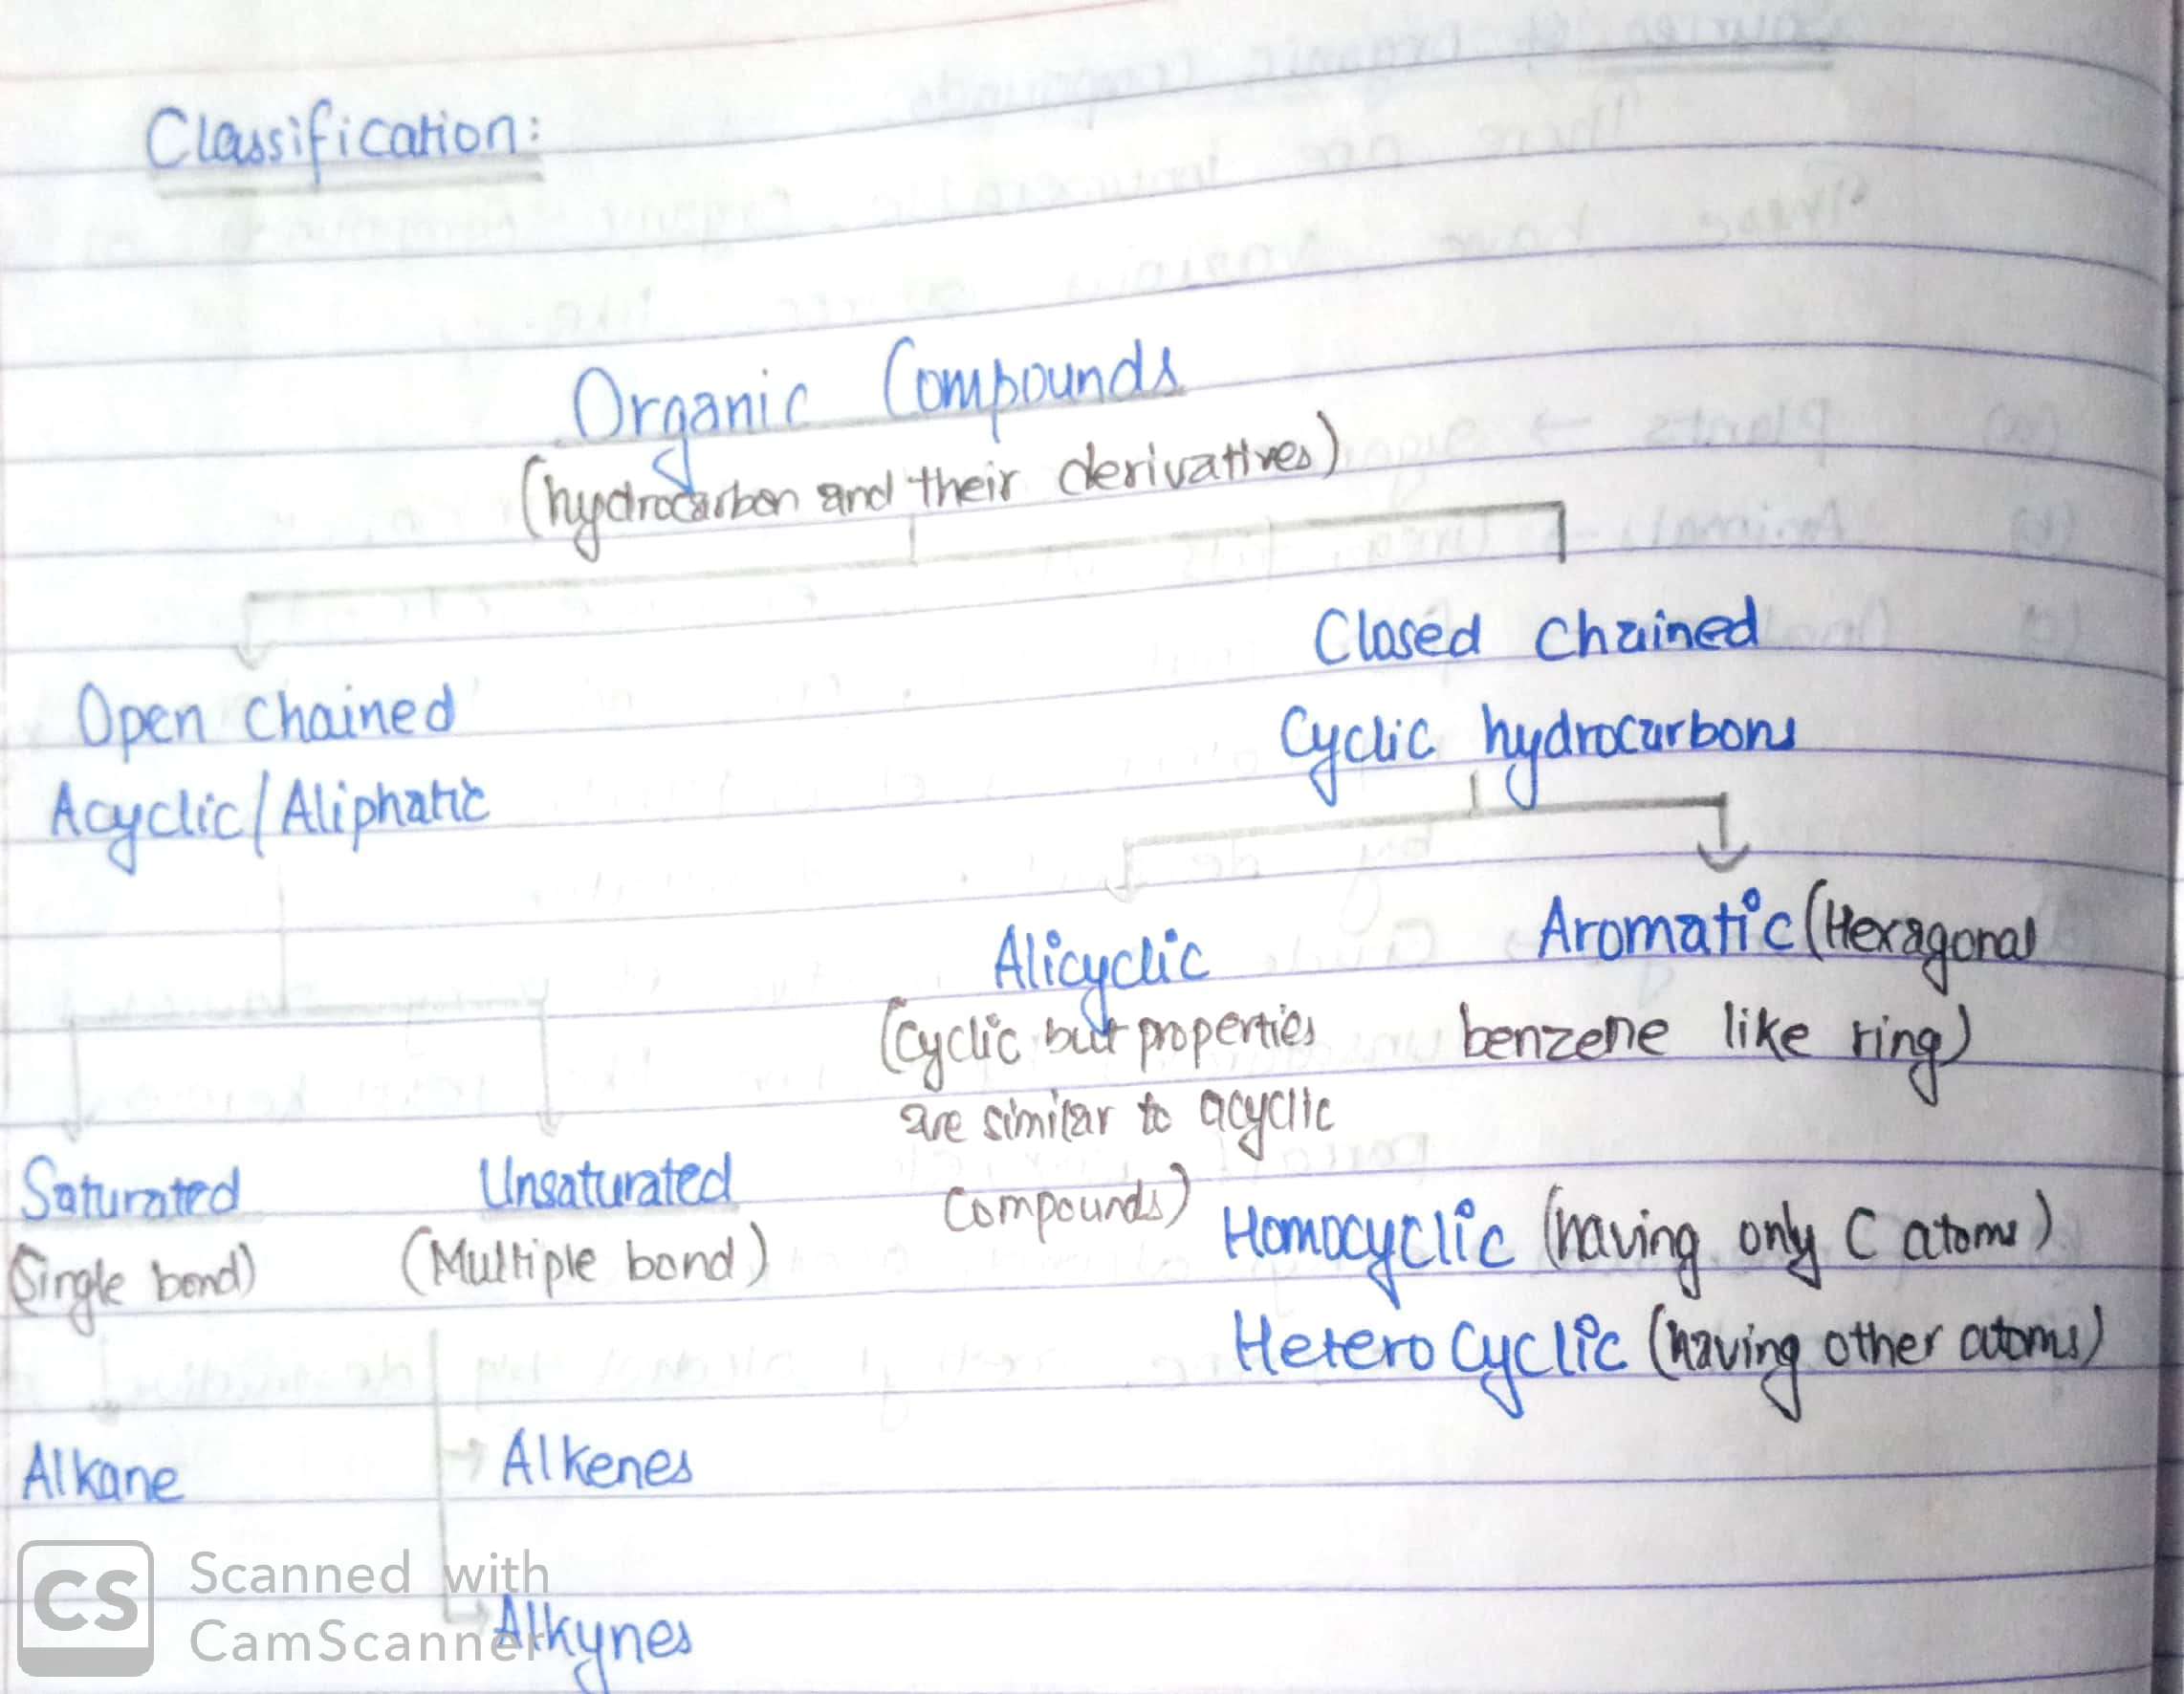 Classification:
Organic Compounds
(hydrocarbon and their derivatives)
Open chained
Acyclic/Aliphatic
Closed chained
Cyclic hydrocarbons
Saturated
(Single bond)
Alkane
Unsaturated
(Multiple bond)
Alkenes
Alkynes
Alicyclic
(Cyclic but properties
are similar to acyclic
compounds)
Aromatic (Hexagonal
benzene like ring)
Homocyclic (having only C atoms)
Hetero Cyclic (having other atoms)
CS
Scanned with
CamScanner